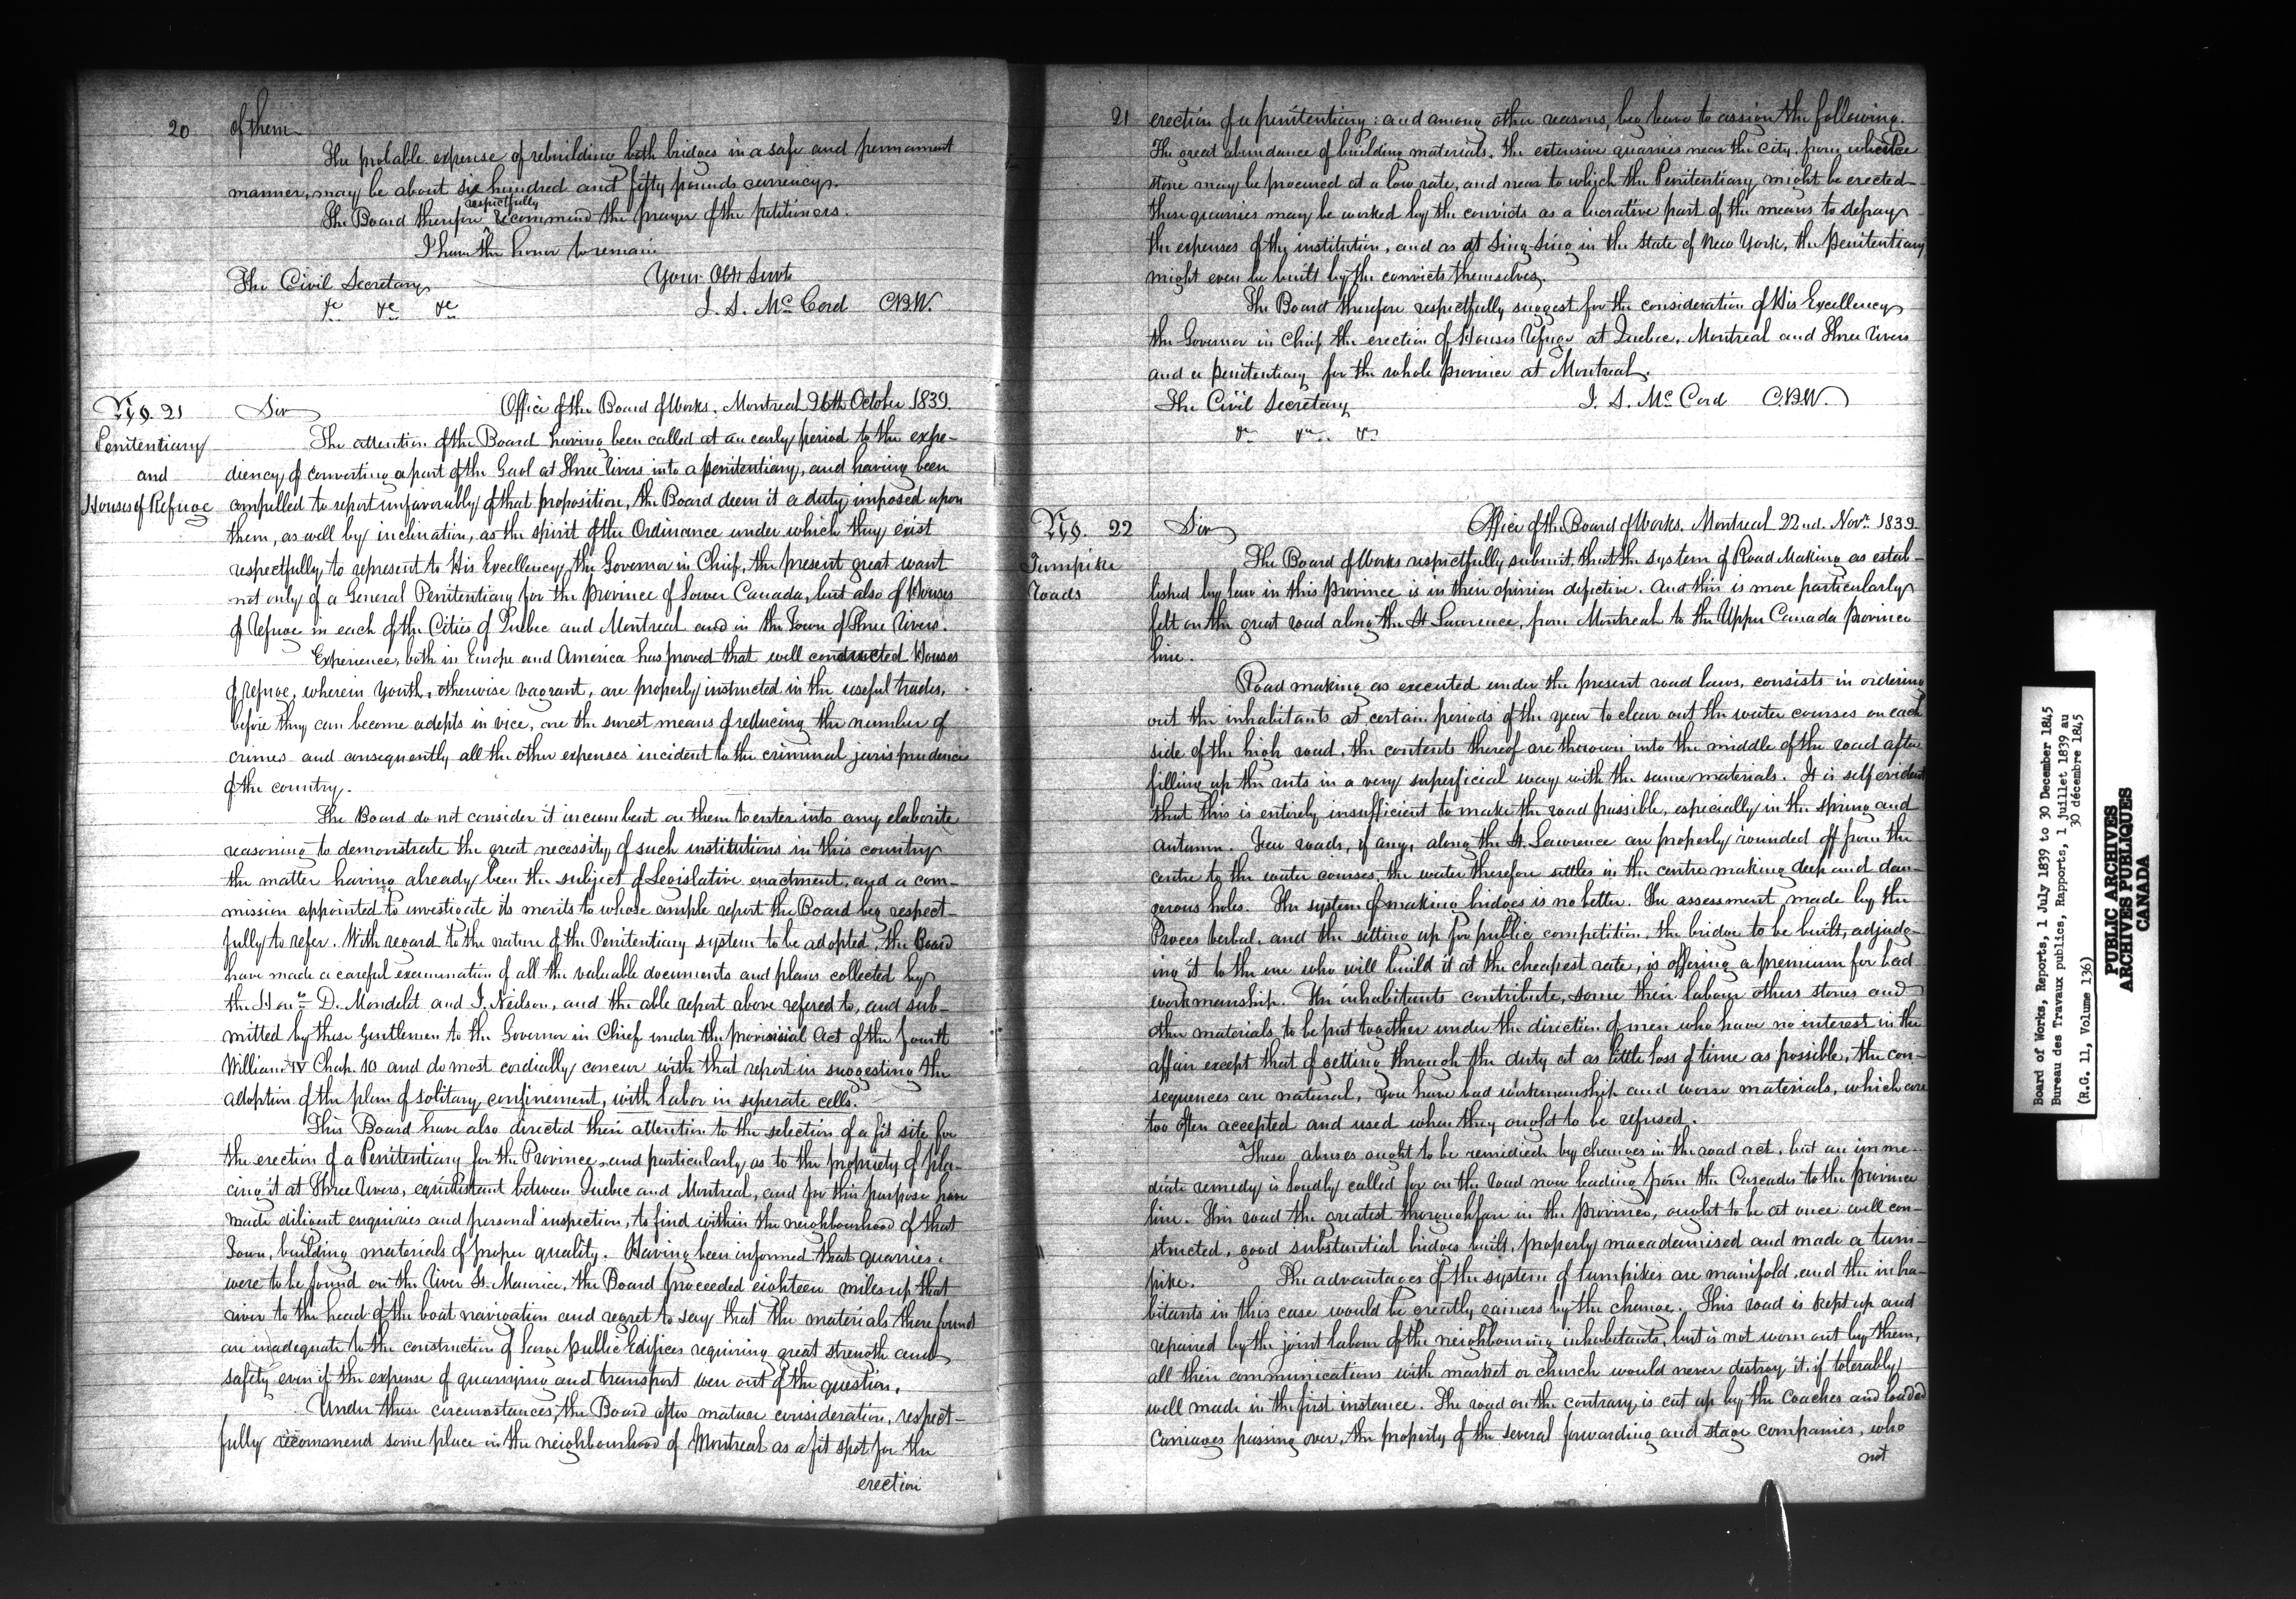 20
of them
The probable expense of rebuilding both bridges in a safe and permanent
manner, may be about six hundred and fifty pounds currency.
The Board therefore respectfully recommend the prayer of the petitioners.
I have the honor to remain
Your Obt Servt
The Civil Secretary
&c &c &c
J. S. McCord C.B.W.
No. 21
Penitentiary
and
Houses of Refuge
Sir
Office of the Board of Works. Montreal 26th October 1839.
The attention of the Board having been called at an early period to the expe-
diency of converting a part of the Gaol at Three Rivers into a penitentiary, and having been
compelled to report unfavorably of that proposition, the Board deem it a duty imposed upon
them, as well by inclination, as the spirit of the Ordinance under which they exist
respectfully to represent to His Excellency, the Governor in Chief, the present great want
not only of a General Penitentiary for the province of Lower Canada, but also of Houses
of Refuge in each of the Cities of Quebec and Montreal and in the Town of Three Rivers.
Experience, both in Europe and America has proved that well conducted Houses
of refuge, wherein youth, otherwise vagrant, are properly instructed in the useful trades,
before they can become adepts in vice, are the surest means of reducing the number of
crimes and consequently all the other expenses incident to the criminal jurisprudence
of the country.
The Board do not consider it incumbent on them to enter into any elaborite
reasoning to demonstrate the great necessity of such institutions in this country
the matter having already been the subject of Legislative enactment, and a com-
mission appointed to investigate its merits to whose ample report the Board beg respect-
fully to refer. With regard to the nature of the Penitentiary system to be adopted, the Board
have made a careful examination of all the valuable documents and plans collected by
the Honble D. Mondelet and J. Neilson, and the able report above refered to, and sub-
mitted by these Gentlemen to the Governor in Chief under the provincial Act of the fourth
William IV Chap. 10 and do most cordially concur with that report in suggesting the
adoption of the plan of solitary confinement, with labor in seperate cells.
This Board have also directed their attention to the selection of a fit site for
the erection of a Penitentiary for the Province, and particularly as to the propriety of pla-
cing it at Three Rivers, equidistant between Quebec and Montreal, and for this purpose have
made diligent enquiries and personal inspection, to find within the neighbourhood of that
Town, building materials of proper quality. Having been informed that quarries
were to be found on the River St. Maurice, the Board proceeded eighteen miles up that
river to the head of the boat navigation and regret to say that the materials there found
are inadequate to the construction of large public Edifices requiring great strength and
safety even if the expense of quarrying and transport were out of the question.
Under these circumstances, the Board after mature consideration, respect-
fully recommend some place in the neighbourhood of Montreal as a fit spot for the
erection
21
erection of a penitentiary: and among other reasons, beg leave to assign the following.
The great abundance of building materials, the extensive quarries near the city, from whence
stone may be procured at a low rate, and near to which the Penitentiary might be erected
these quarries may be worked by the convicts as a lucrative part of the means to defray
the expenses of the institution, and as at Sing-Sing in the State of New York, the penitentiary
might even be built by the convicts themselves.
The Board therefore respectfully suggest for the consideration of His Excellency
the Governor in Chief the erection of Houses Refuge at Quebec, Montreal and Three Rivers
and a penitentiary for the whole province at Montreal.
The Civil Secretary
J. S. McCord C.B.W.
&c &c &c
No. 22
Turnpike
Roads
Sir
Office of the Board of Works. Montreal 22nd. Novr. 1839
The Board of Works respectfully submit, that the system of Road Making as estab-
lished by law in this Province is in their opinion defective. And this is more particularly
felt on the great road along the St Lawrence, from Montreal to the Upper Canada province
line.
Road making as executed under the present road laws, consists in ordering
out the inhabitants at certain periods of the year to clear out the water courses on each
side of the high road, the contents thereof are thrown into the middle of the road after
filling up the ruts in a very superficial way with the same materials. It is self evident
that this is entirely insufficient to make the road passible, especially in the spring and
autumn. Few roads, if any, along the St. Lawrence are properly rounded off from the
centre to the water courses, the water therefore settles in the centre making deep and dan-
gerous holes. The system of making bridges is no better. The assessment made by the
Proces verbal, and the setting up for public competition, the bridge to be built, adjudg-
ing it to the one who will build it at the cheapest rate, is offering a premium for bad
workmanship. The inhabitants contribute, some their labour others stones and
other materials to be put together under the direction of men who have no interest in the
affair except that of getting through the duty at as little loss of time as possible, the con-
sequences are natural, you have bad workmanship and worse materials, which are
too often accepted and used when they ought to be refused.
These abuses ought to be remedied by changes in the road act, but an imme-
diate remedy is loudly called for on the road now leading from the Cascades to the province
line. This road the greatest thoroughfare in the province, ought to be at once well con-
structed, good substantial bridges built, properly macadamised and made a turn-
pike. The advantages of the system of turnpikes are manifold, and the inha-
bitants in this case would be greatly gainers by the change. This road is kept up and
repaired by the joint labour of the neighbouring inhabitants, but is not worn out by them,
all their communications with market or church would never destroy it, if tolerably
well made in the first instance. The road on the contrary is cut up by the coaches and loaded
carriages passing over, the property of the several forwarding and stage companies, who
not
Board of Works, Reports, 1 July 1839 to 30 December 1845
Bureau des Travaux publics, Rapports, 1 juillet 1839 au
30 décembre 1845
(R.G. 11, Volume 136)
PUBLIC ARCHIVES
ARCHIVES PUBLIQUES
CANADA